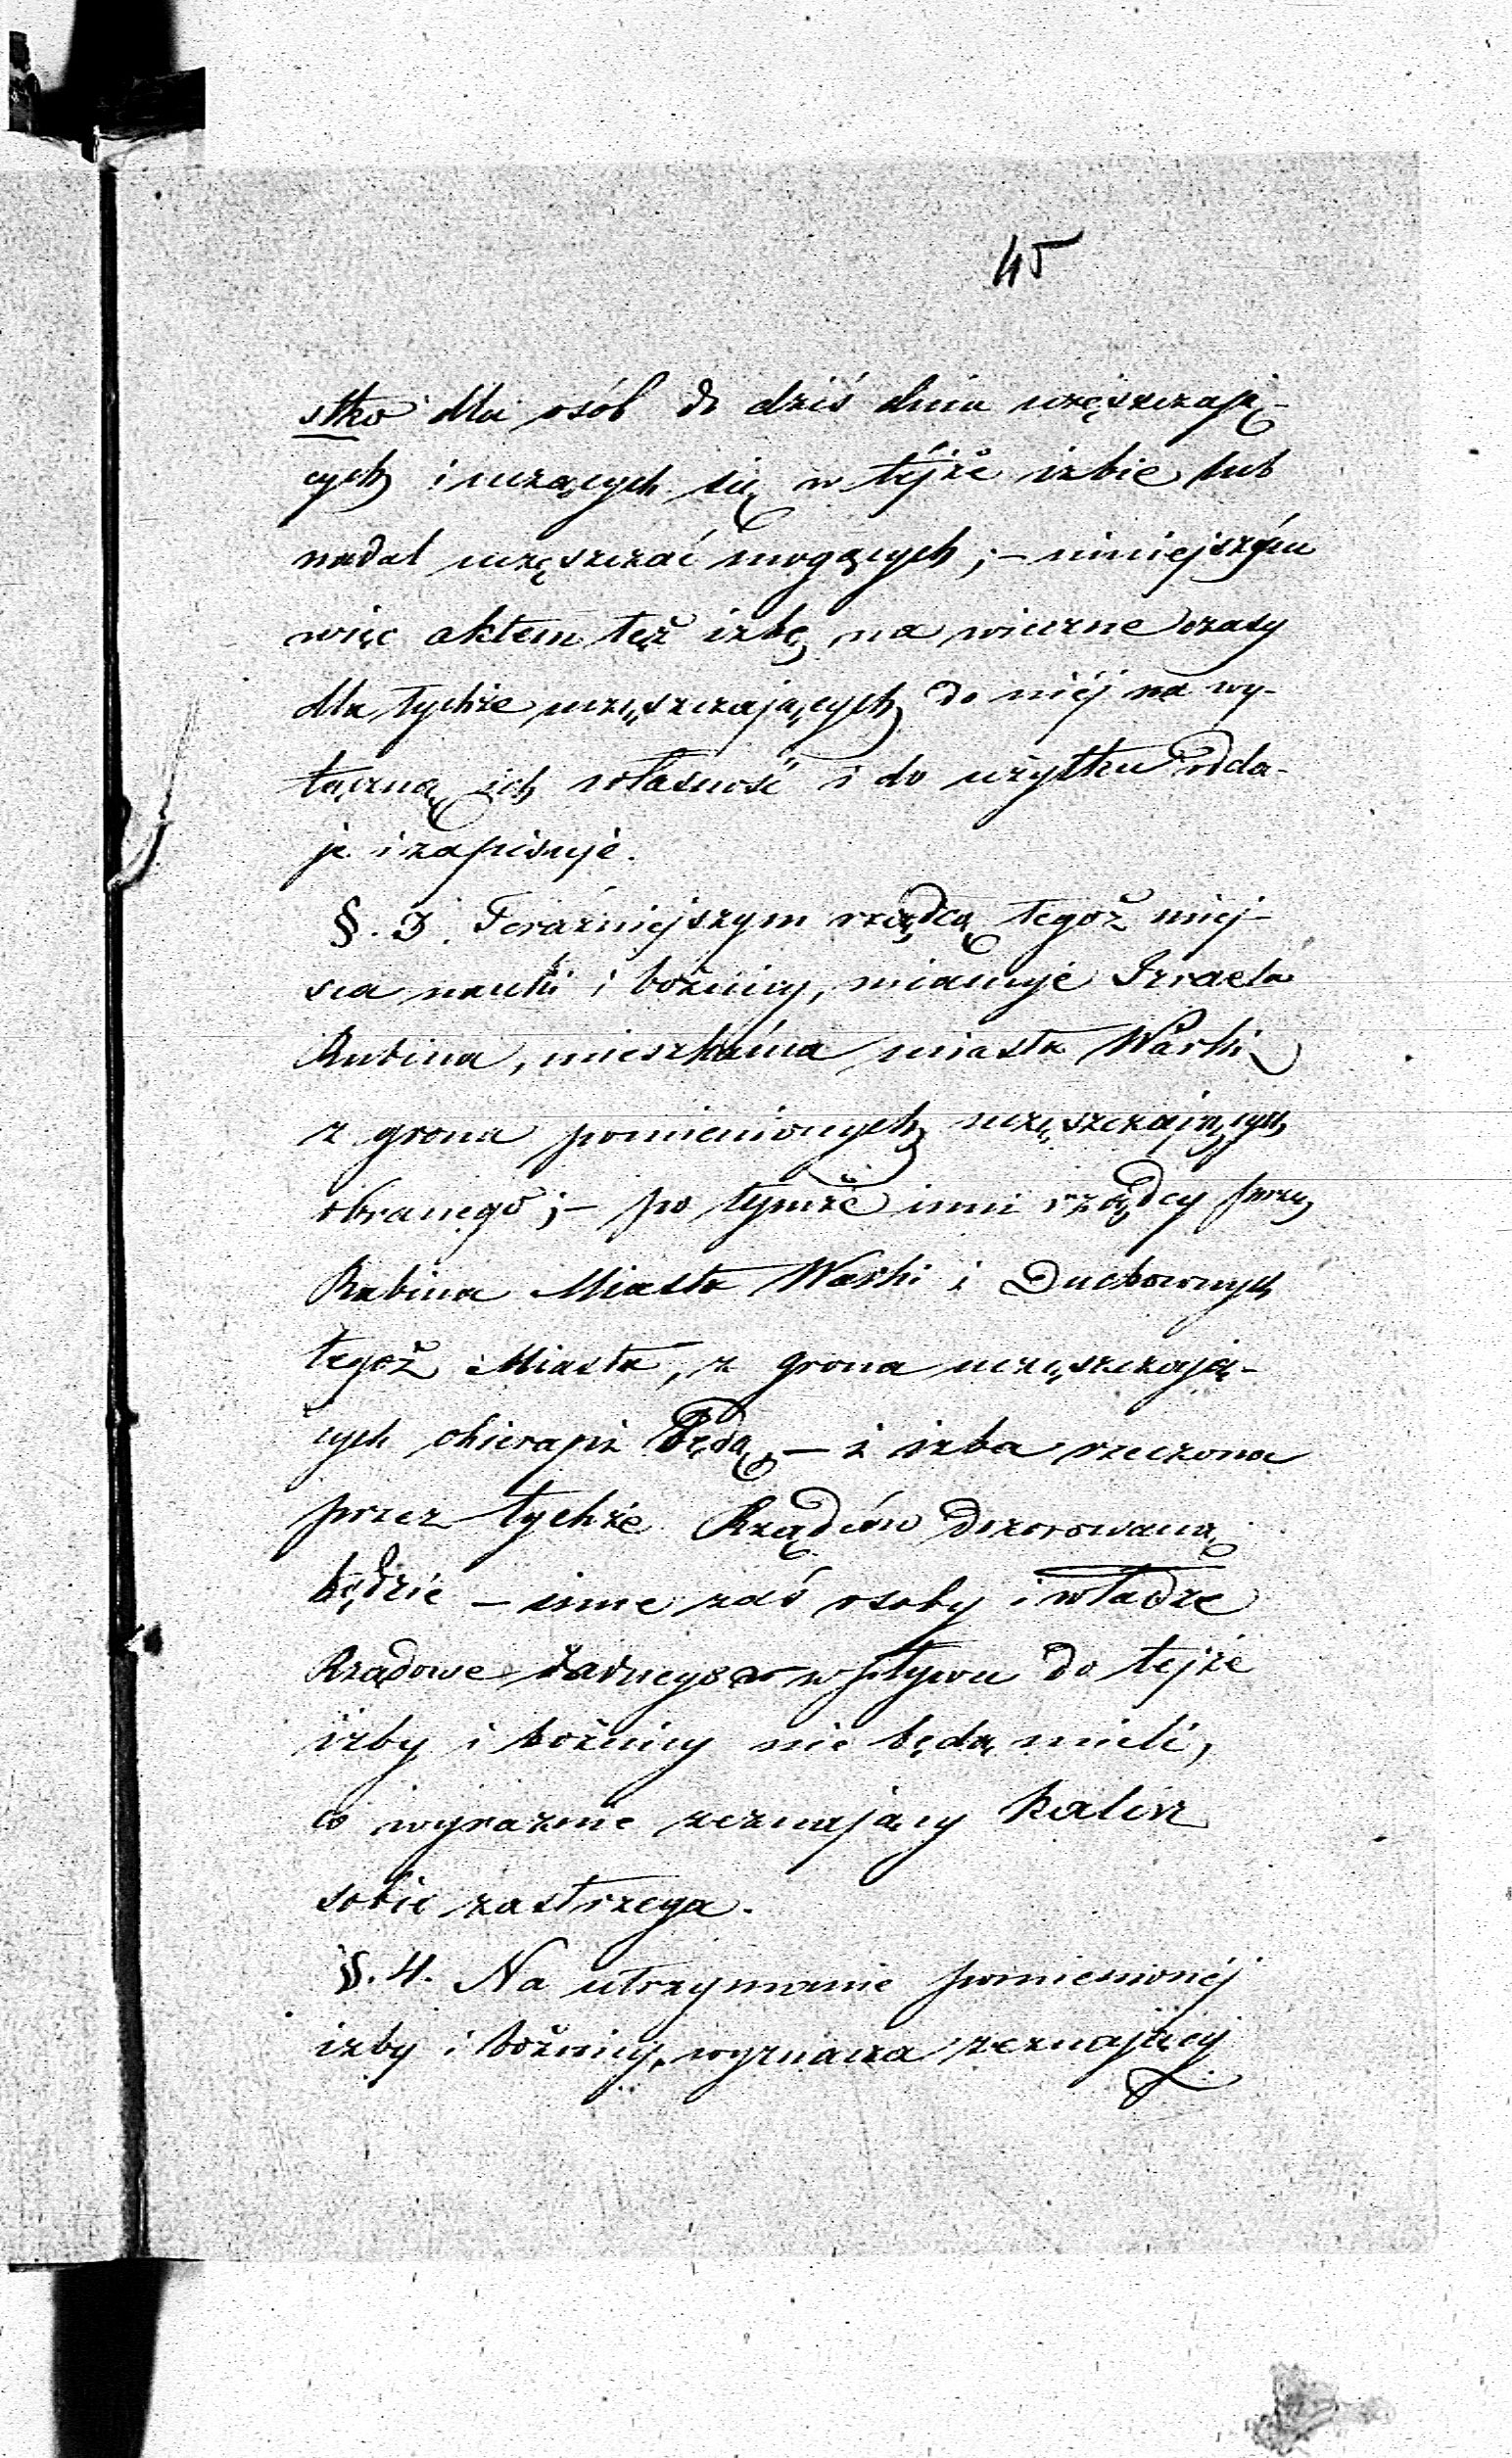 45
stko dla osób do dziś dnia uczęszczają-
cych i uczących się w tejże izbie lub
nadal uczęszczać mogących; – niniejszym
więc aktem też izbę na wieczne czasy
dla tychże uczęszczających do niéj na wy-
łączną ich własność i do użytku odda-
je i zapisuje.
§. 3. Teraźniejszym rządcą tegoż miej-
sca nauki i bożnicy, mianuje Izraela
Rubina, mieszkańca miasta Warki
z grona pomienionych uczęszczających
obranego; – po tymże inni rządcy przez
Rabina Miasta Warki i Duchownych
tegoż Miasta, z grona uczęszczają-
cych obierani będą – i izba rzeczona
przez tychże Rządców dozorowaną
będzie – inne zaś osoby i władze
Rządowe żadnego wpływu do tejże
izby i bożnicy nie będą mieli,
co wyraznie zeznający Kalisz
sobie zastrzega.
§. 4. Na utrzymanie pomienionéj
izby i bożnicy, wyznacza zeznający